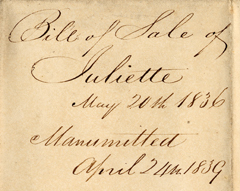 Bill of Sale of
Juliette
May 20th 1836
Manumitted
April 24th 1839